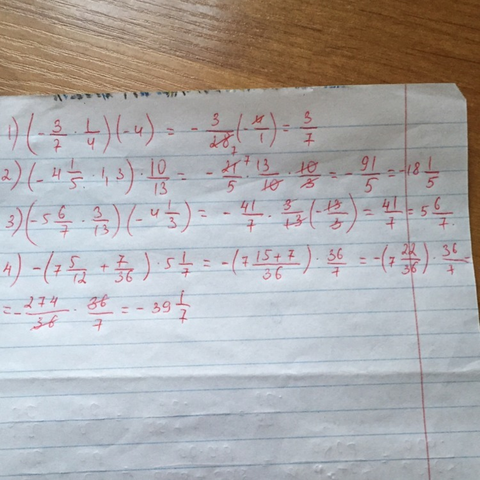 1) (-3/7 · 1/4)(-4) = -3/28₇ (-4/1) = 3/7
2) (-4 1/5 · 1,3) · 10/13 = -21/5 ⁷ · 13/10 · 10/3 = -91/5 = -18 1/5
3) (-5 6/7 · 3/13)(-4 1/3) = -41/7 · 3/13 (-13/3) = 41/7 = 5 6/7.
4) -(7 5/12 + 7/36) · 5 1/7 = -(7 15+7/36) · 36/7 = -(7 22/36) · 36/7 =
= -274/36 · 36/7 = -39 1/7